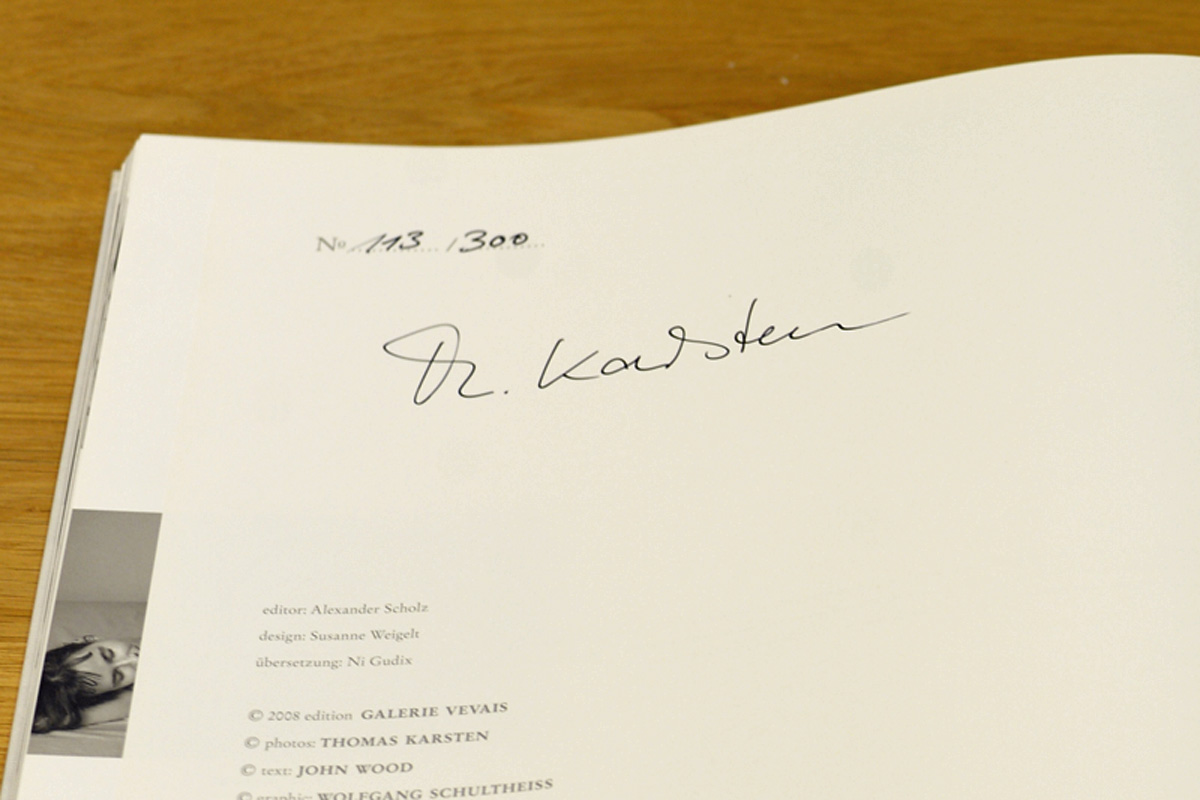 Nº 113 / 300
Th. Karsten
editor: Alexander Scholz
design: Susanne Weigelt
übersetzung: Ni Gudix
© 2008 edition GALERIE VEVAIS
© photos: THOMAS KARSTEN
© text: JOHN WOOD
© graphic: WOLFGANG SCHULTHEISS